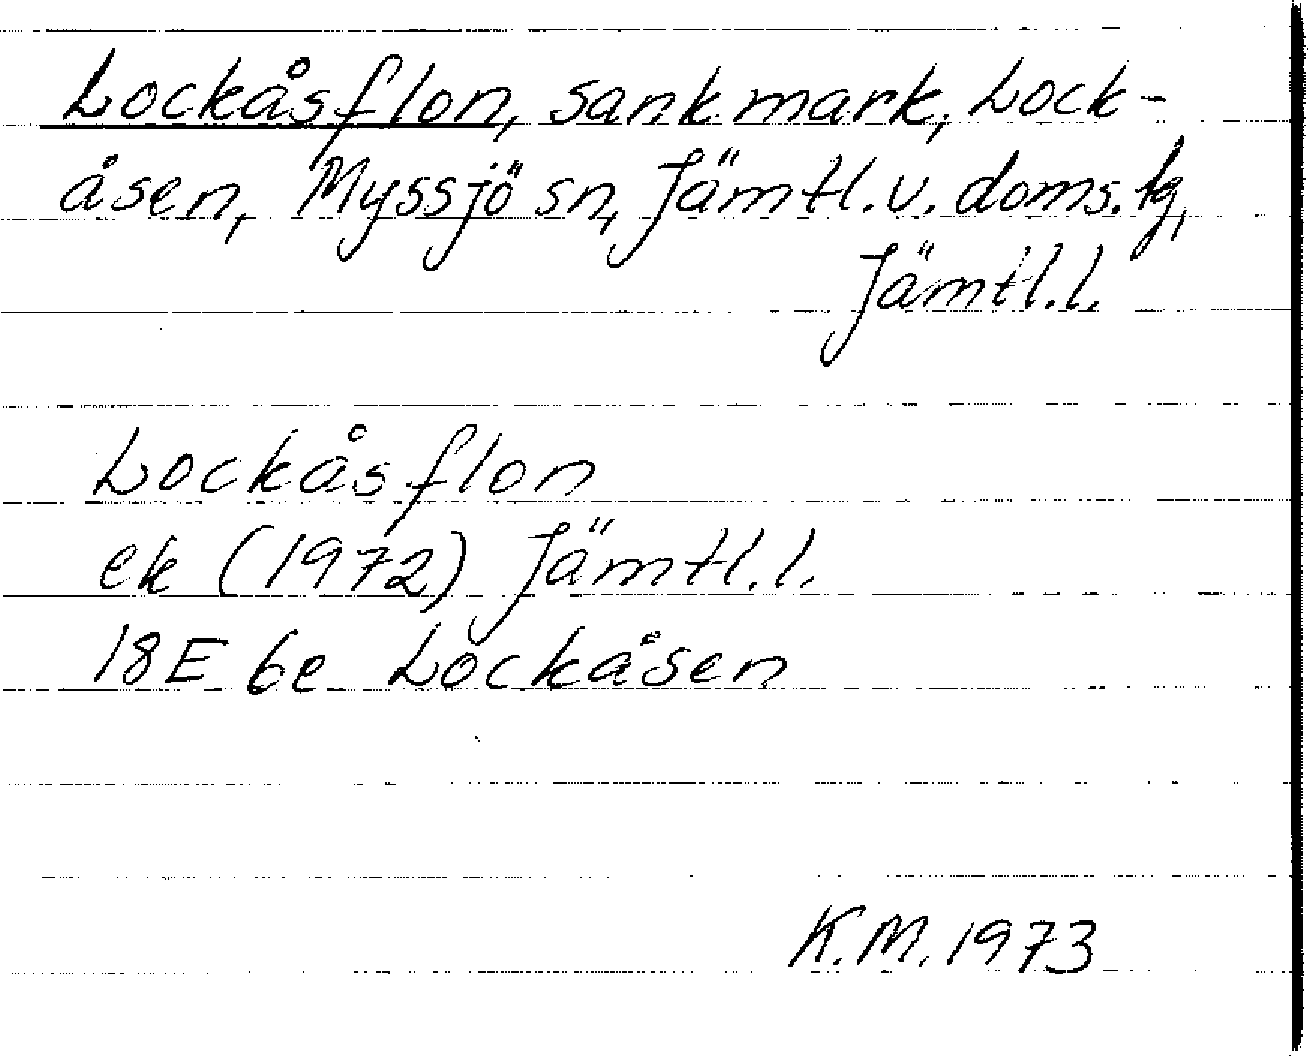 Lockåsflon, sankmark, Lock-
åsen, Myssjö sn, Jämtl. v. doms. lg,
Jämtl. l.
Lockåsflon
ek (1972) Jämtl. l.
18E 6e Lockåsen
K.M. 1973